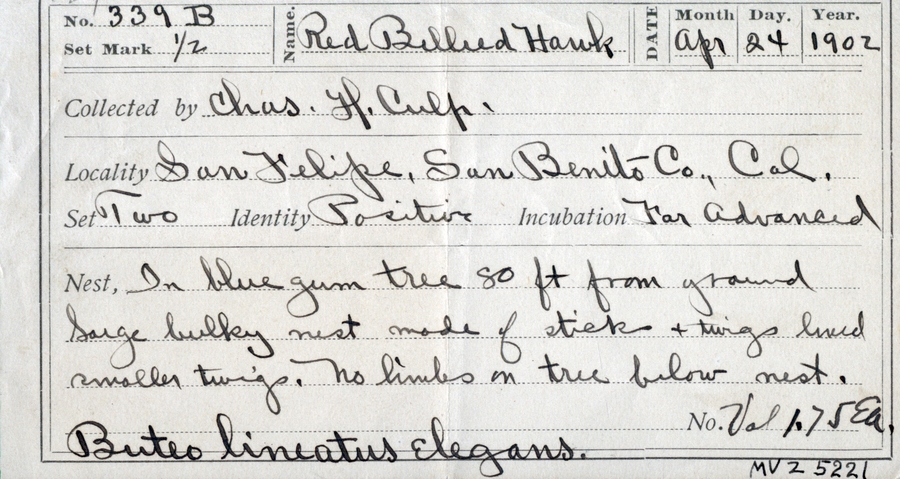 No. 339 B Name. Red Bellied Hawk DATE Month Day. Year.
Set Mark 1/2 Apr 24 1902
Collected by Chas. H. Culp.
Locality San Felipe, San Benito Co., Cal.
Set Two Identity Positive Incubation Far Advanced
Nest, In blue gum tree 80 ft from ground
Large bulky nest made of sticks + twigs lined
smaller twigs. No limbs on tree below nest.
No. Val 1.75 Ea.
Buteo lineatus elegans.
MVZ 5221